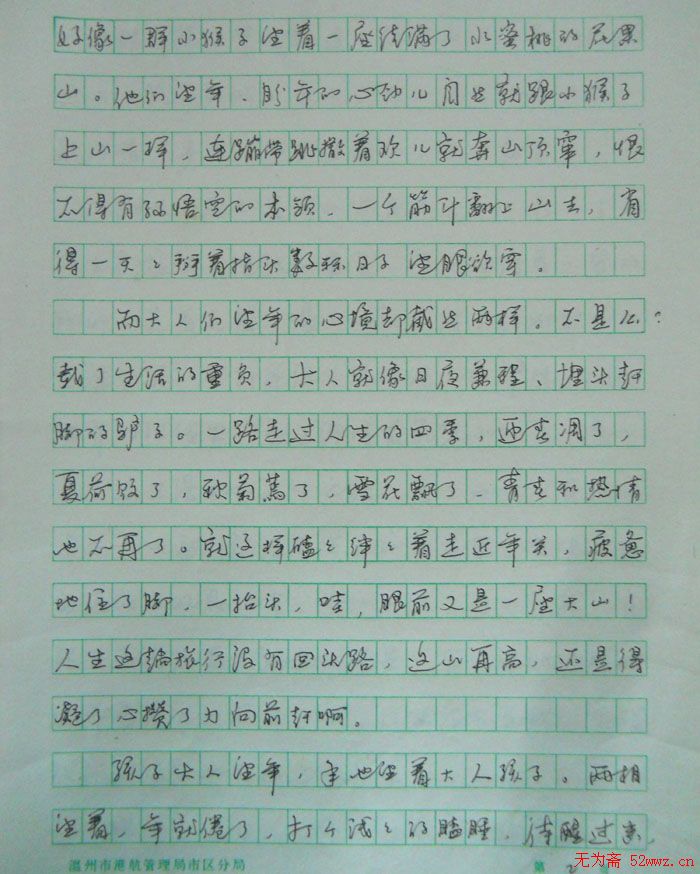 好像一群小猴子望着一座结满了水蜜桃的花果
山。他们望年、盼年的心劲儿自是就跟小猴子
上山一样，连蹦带跳撒着欢儿就奔山顶窜，恨
不得有孙悟空的本领，一个筋斗翻上山去，省
得一天天掰着指头数日子望眼欲穿。
而大人们望年的心境却截然两样。不是么？
载了生活的重负，大人就像日夜兼程、埋头赶
脚的驴子。一路走过人生的四季，迎春凋了，
夏荷败了，秋菊蔫了，雪花飘了，青春和热情
也不再了。就这样磕磕绊绊着走近年关，疲惫
地住了脚，一抬头，哇，眼前又是一座大山！
人生这趟旅行没有回头路，这山再高，还是得
凝了心攒了力向前赶啊。
孩子大人望年，年也望着大人孩子。两相
望着，年就倦了，打个浅浅的瞌睡，待醒过来，
温州市港航管理局市区分局 第 2
无为斋 52wwz.cn